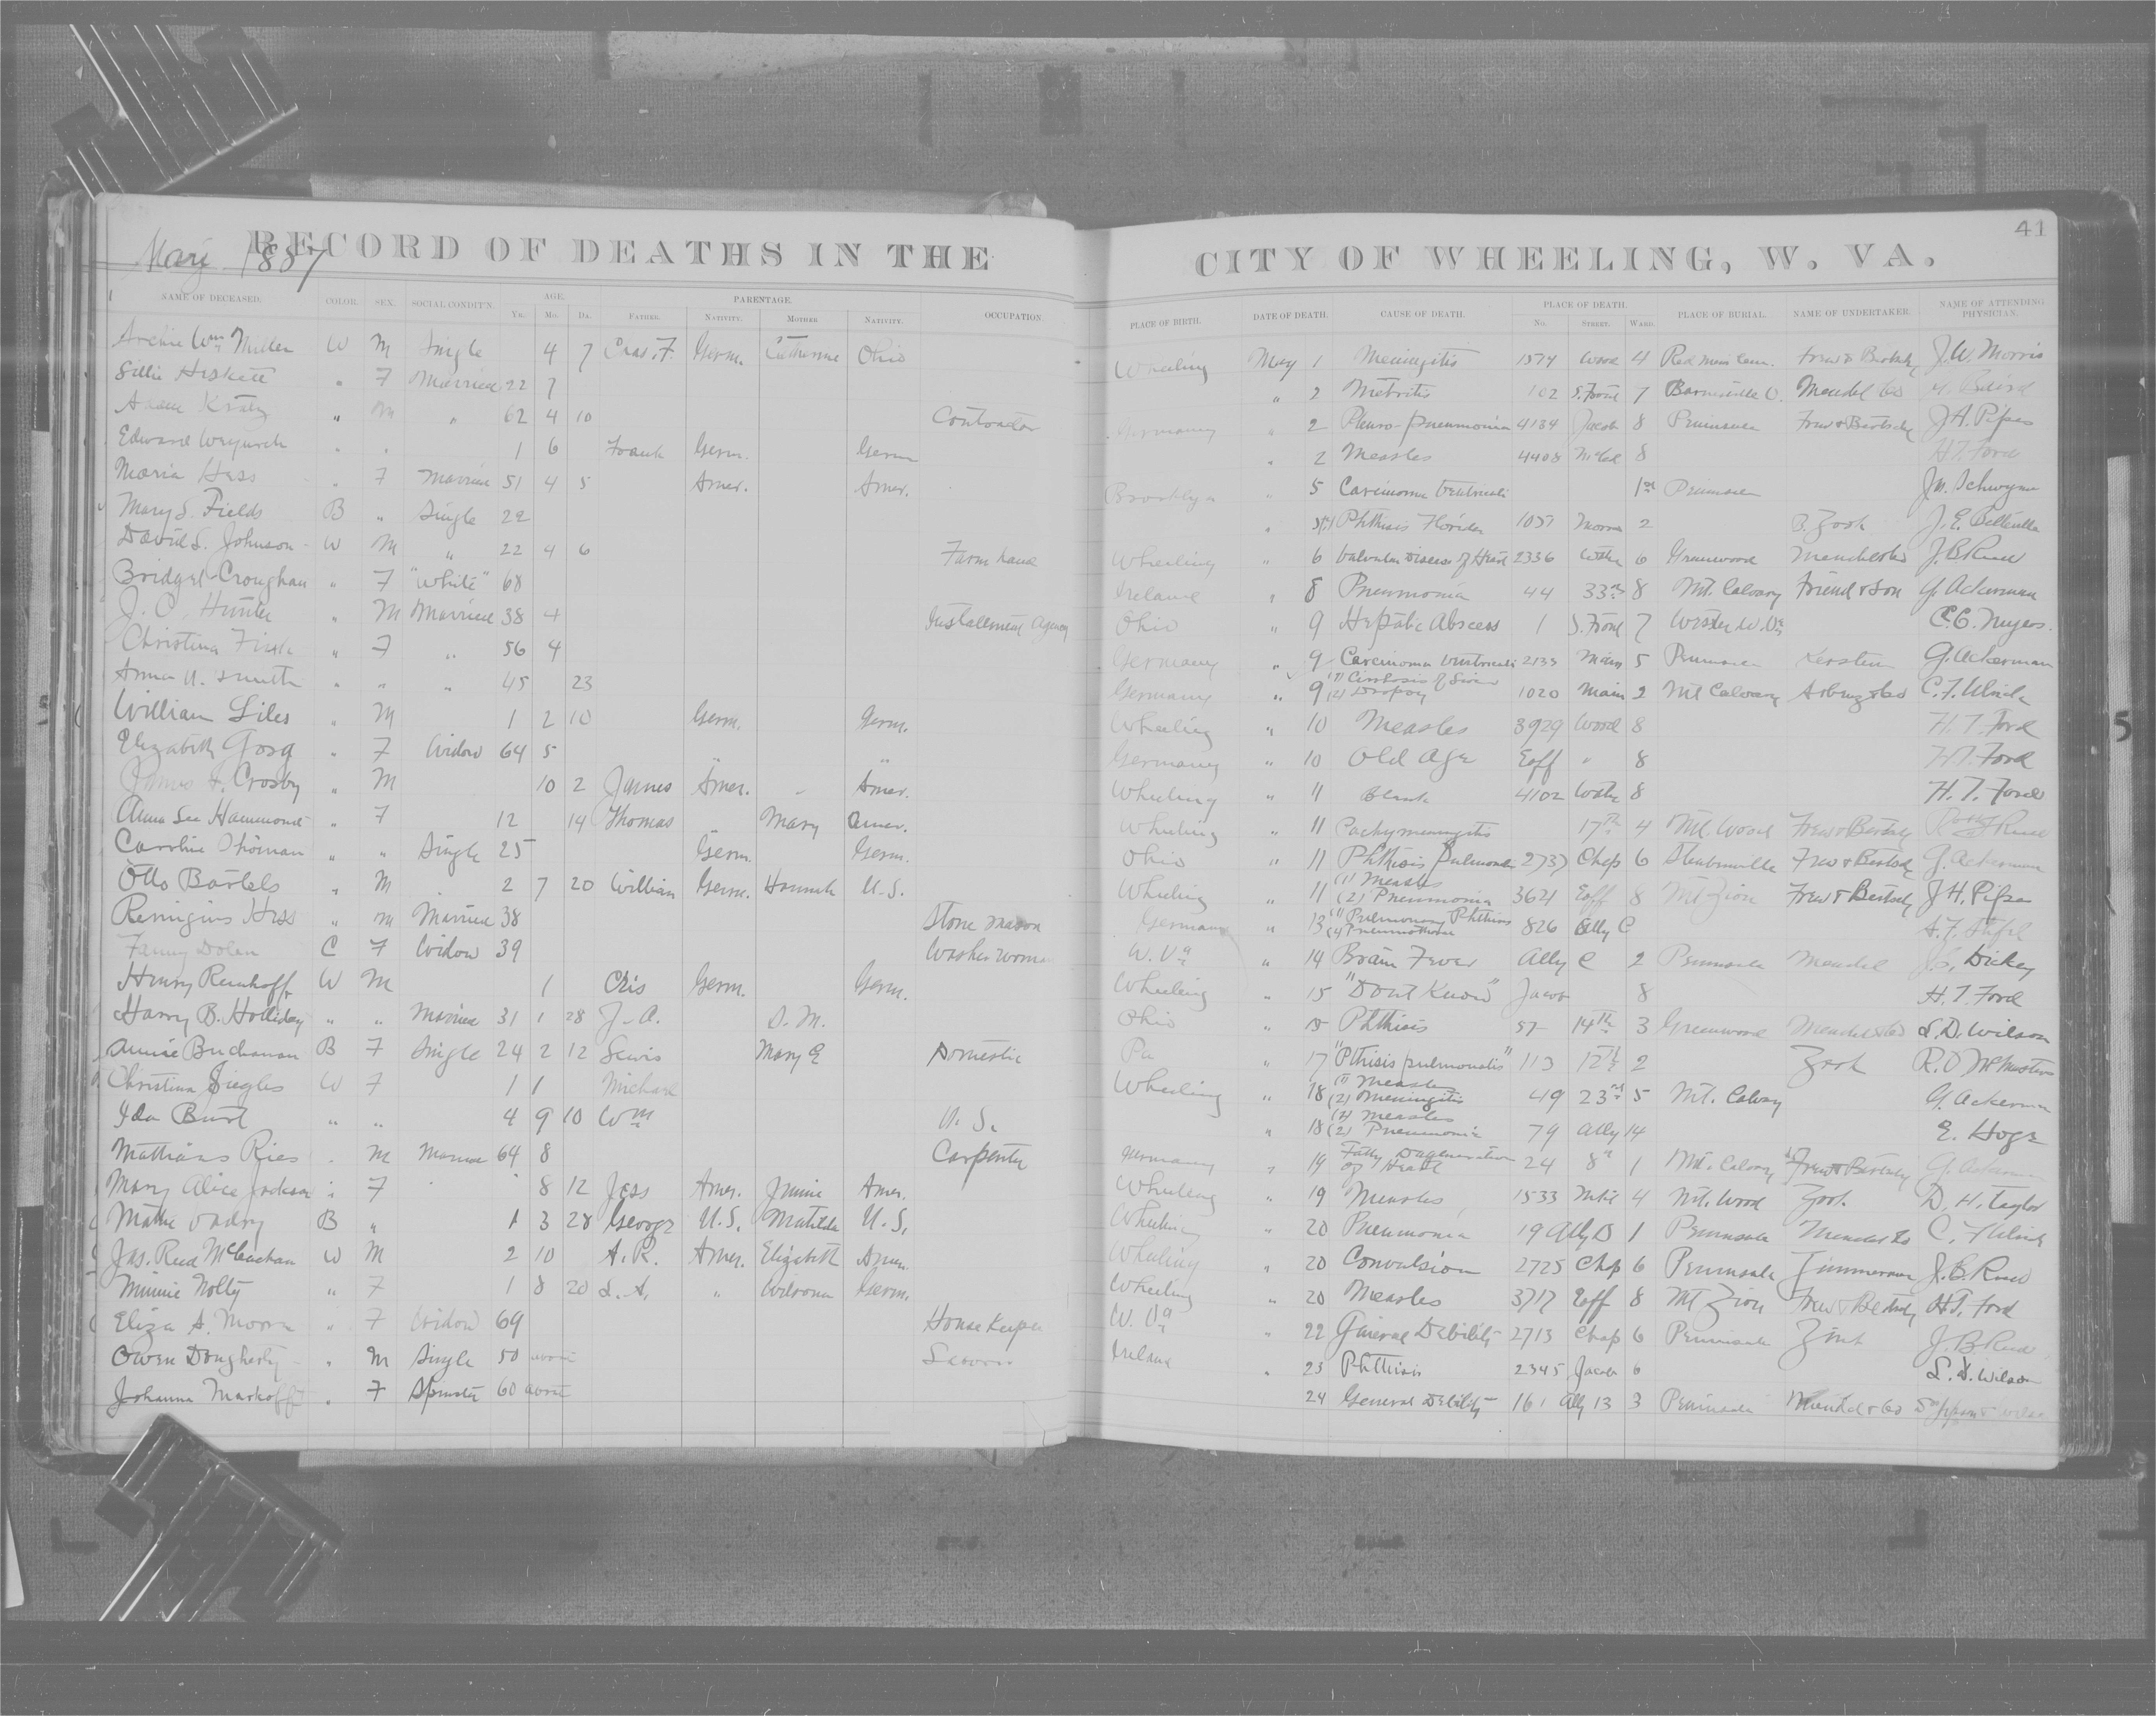 41
May 1887
RECORD OF DEATHS IN THE CITY OF WHEELING, W. VA.
NAME OF DECEASED. COLOR. SEX. SOCIAL CONDIT'N. AGE. PARENTAGE. OCCUPATION. PLACE OF BIRTH. DATE OF DEATH. CAUSE OF DEATH. PLACE OF DEATH. PLACE OF BURIAL. NAME OF UNDERTAKER. NAME OF ATTENDING PHYSICIAN.
YR. MO. DA. FATHER. NATIVITY. MOTHER. NATIVITY. NO. STREET. WARD.
Archie Wm Miller W M Single 4 7 Chas. F. Germ. Catherine Ohio Wheeling May 1 Meningitis 1574 Wood 4 Red Mens Cem. Frew & Bertschy J. W. Morris
Sillie Heskett " F Married 22 7 " 2 Metritis 102 S. Front 7 Barnesville O. Mendel & Co Baird
Adam " M " 62 4 10 Contractor Germany " 2 Pleuro-pneumonia 4134 Jacob 8 Peninsula Frew & Bertschy J. H. Pipes
Edward " " 1 6 Frank Germ. Germ " 2 Measles 4408 8 H. T. Ford
Maria Hess " F Married 51 4 5 Amer. Amer. Brooklyn " 5 Carcinoma Ventriculi 1st Peninsula
Mary S. Fields B " Single 22 " Phthisis Florida 1057 2 B. Zook
David S. Johnson W M " 22 4 6 Farm hand Wheeling " 6 Valvular Disease of Heart 2336 6 Greenwood Mendel & Co J. B. Reed
Bridget Croughan " F "White" 68 Ireland " 8 Pneumonia 44 33rd 8 Mt. Calvary Friend & Son G. Ackerman
J. C. Hunter " M Married 38 4 Installement Agency Ohio " 9 Hepatic Abscess 1 S. Front 7 W. Va
Christina " F " 56 4 Germany " 9 Carcinoma Ventriculi 2133 Main 5 Peninsula Kersten G. Ackerman
Anna " " " 45 23 Germany " 9 (1) Cirrhosis of Liver (2) Dropsy 1020 Main 2 Mt Calvary C. F. Ulrich
William Liles " M 1 2 10 Germ. Germ. Wheeling " 10 Measles 3929 Wood 8 H. T. Ford
Elizabeth " F Widow 64 5 " " Germany " 10 Old Age Eoff " 8 H. T. Ford
James F. Crosby " M 10 2 James Amer. Amer. Wheeling " 11 Blank 4102 8 H. T. Ford
Anna Lee Hammond " F 12 14 Thomas Mary Amer. Wheeling " 11 Pachymeningitis 17th 4 Mt. Wood Frew & Bertschy
Caroline " " Single 25 Germ. Germ. Ohio " 11 Phthisis Pulmonalis 2737 Chap 6 Steubenville Frew & Bertschy G. Ackerman
Otto Bartels " M 2 7 20 William Germ. Hannah U.S. Wheeling " 11 (1) Measles (2) Pneumonia 3621 Eoff 8 Mt Zion Frew & Bertschy J. H. Pipes
Remigius Hess " M Married 38 Stone Mason Germany " 13 (1) Pulmonary Phthisis 826 Ally C
Fanny Dolan C F Widow 39 Washer Woman W. Va " 14 Brain Fever Ally C 2 Peninsula Mendel Dickey
Henry W M 1 Chis Germ. Germ. Wheeling " 15 "Dont Know" Jacob 8 H. T. Ford
Harry B. Holliday " " Married 31 1 28 J. A. D. M. Ohio " 15 Phthisis 57 14th 3 Greenwood Mendel & Co L. D. Wilson
Annie Buchanan B F Single 24 2 12 Lewis Mary E Domestic Pa " 17 "Pthisis pulmonalis" 113 12th 2 Zook
Christina W F 1 1 Michael Wheeling " 18 (1) Measles (2) Meningitis 49 23rd 5 Mt. Calvary G. Ackerman
Ida Burt " " 4 9 10 Wm U. S. " 18 (1) Measles (2) Pneumonia 79 Ally 14 E. Hoge
Mathias Ries " M Married 64 8 Carpenter Germany " 19 Fatty Degeneration of Heart 24 8th 1 Mt. Calvary Frew & Bertschy G. Ackerman
Mary Alice Jackson " F 8 12 Jess Amer. Jennie Amer. Wheeling " 19 Measles 1533 4 Mt. Wood Zook D. H. Taylor
B " 1 3 28 George U.S. Matilda U.S. Wheeling " 20 Pneumonia 19 Ally D 1 Peninsula Mendel & Co C. F. Ulrich
Jas. Reed W M 2 10 A. R. Amer. Elizabeth Amer. Wheeling " 20 Convulsion 2725 Chap 6 Peninsula Zimmerman J. B. Reed
Minnie Nolty " F 1 8 20 L. A. " Germ. Wheeling " 20 Measles 3717 Eoff 8 Mt Zion Frew & Bertschy H. T. Ford
Eliza A. Moore " F Widow 69 House Keeper W. Va " 22 General Debility 2713 Chap 6 Peninsula Zink J. B. Reed
Owen Dougherty " M Single 50 about Ireland " 23 Phthisis 2345 Jacob 6 L. D. Wilson
Johanna " F Spinster 60 about 24 General Debility 161 Ally 13 3 Peninsula Mendel & Co